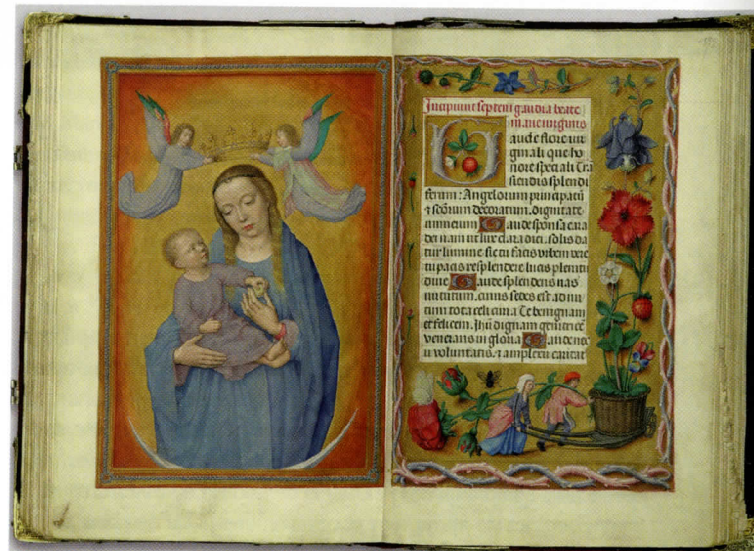 Incipiunt septem gaudia beate
marie virginis
Gaude flore vir
ginali que ho
nore speciali Tra
scendis splendi
ferum : Angelorum principatū
⁊ sc̄orum decoratum dignitate
numerum Gaude sponsa cara
dei nam ut lux clara diei solis da
tur lumine sic tu facis orbem vere
tu pacis resplendere lucis plenitu
dine Gaude splendens vas
virtutum cuius sedes est ad nu
tum tota celi curia Te benignam
et felicem Jhū dignam genitricē
venerans in gloria Gaude ne
u voluntatis ⁊ amplexu caritat